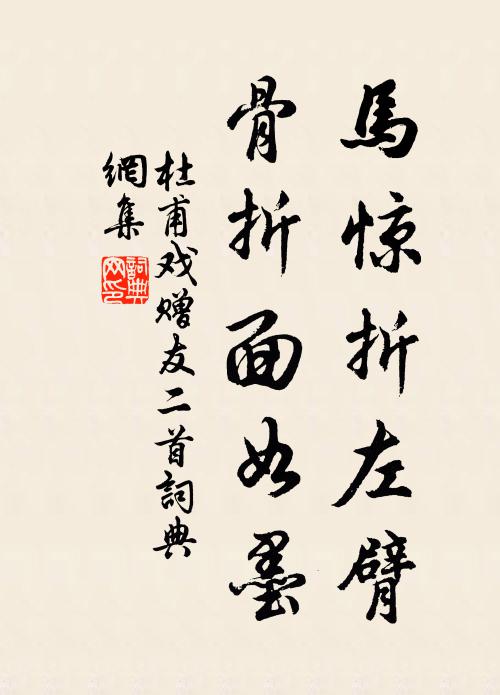 馬惊折左臂
骨折面如墨
杜甫戏赠友二首詞典
網集
詞典
网印